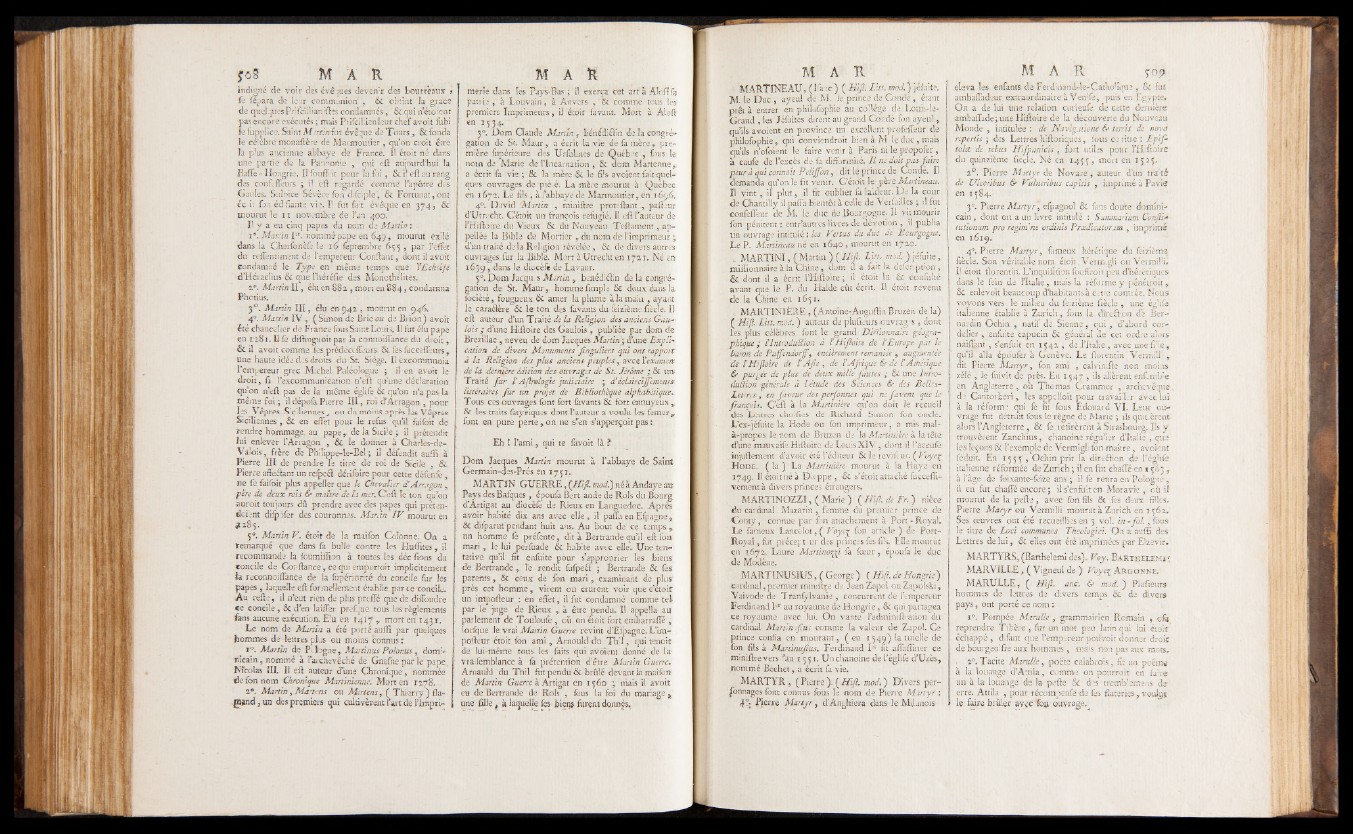 508 M A R
indigné de voir des évêques devenir des bourreaux,
se sépara de leur communion, & obtint la grace
de quelques Priscillianistes condamnés, & qui n'étoient
pas encore exécutés ; mais Priscillien leur chef avoit subi
le supplice. Saint Martin fut évêque de Tours, & fonda
le célèbre monastère de Marmoutier, qu'on croit être
la plus ancienne abbaye de France. Il étoit né dans
une partie de la Pannonie, qui est aujourd'hui la
Basse-Hongrie. Il souffrit pour sa foi, & il est au rang
des confesseurs ; il est regardé comme l'apôtre des
Gaules. Sulpice Sévère son disciple, & Fortunat, ont
écrit sa édifiante vie. Il fut fait évêque en 374, &
mourut le 11 novembre de l'an 400.
Il y a eu cinq papes du nom de Martin :
1°. Martin Ier. nommé pape en 649, mourut exilé
dans la Chersonèse le 16 septembre 655, par l'effet
du ressentiment de l'empereur Constant, dont il avoit
condamné le Type en même temps que l'Echtèse
d'Héraclius & que l'hérésie des Monothélites.
2°. Martin II, élu en 882, mort en 884, condamna
Photius.
3°. Martin III, élu en 942, mourut en 946.
4°. Martin IV, ( Simon de Brie ou de Brion ) avoit
été chancelier de France sous Saint Louis. Il fut élu pape
en 1281. Il se distinguoit par la connoissance du droit,
& il avoit comme ses prédécesseurs & ses successeurs,
une haute idée des droits du St. Siége. Il excommunia
l'empereur grec Michel Paléologue ; il en avoit le
droit, si l'excommunication n'est qu'une déclaration
qu'on n'est pas de la même église & qu'on n'a pas la
même foi ; il déposa Pierre III, roi d'Arragon, pour
les Vêpres Siciliennes, ou du moins après les Vêpres
Siciliennes, & en effet pour le refus qu'il faisoit de
rendre hommage au pape, de la Sicile ; il prétendit
lui enlever l'Arragon, & le donner à Charles-de-
Valois, frère de Philippe-le-Bel ; il défendit aussi à
Pierre III de prendre le titre de roi de Sicile, &
Pierre affectant un respect dérisoire pour cette défense,
ne se faisoit plus appeller que le Chevalier d'Arragon,
père de deux rois & maître de la mer. C'est le ton qu'on
auroit toujours dû prendre avec des papes qui préten-
doient disposer des couronnes. Martin IV mourut en
1285.
5°. Martin V. étoit de la maison Colonne. On a
remarqué que dans sa bulle contre les Hussites, il
recommande la soumission à toutes les décisions du
concile de Constance, ce qui emportoit implicitement
la reconnoissance de la supériorité du concile sur les
papes, laquelle est formellement établie par ce concile.
Au reste, il n'eut rien de plus pressé que de dissoudre
ce concile, & d'en laisser presque tous les règlements
sans aucune exécution. Elu en 1417, mort en 1431.
Le nom de Martin a été porté aussi par quelques
hommes de lettres plus ou moins connus :
1°. Martin de Pologne, Martinus Polonus, domi-
nicain, nommé à l'archevêché de Gnesne par le pape
Nicolas III. Il est auteur d'une Chronique, nommée
de son nom Chronique Martinienne. Mort en 1278.
2°. Martin, Martens ou Mertens, ( Thierry ) fla-
mand, un des premiers qui cultivèrent l'art de l'Impri-
M A R
merie dans les Pays-Bas ; il exerça cet art à Alost sa
patrie, à Louvain, à Anvers, & comme tous les
premiers Imprimeurs, il étoit savant. Mort à Alost
en 1534.
3°. Dom Claude Martin, bénédictin de la congré-
gation de St. Maur, a écrit la vie de sa mère, pre-
mière supérieure des Ursulines de Québec, sous le
nom de Marie de l'Incarnation, & dom Martenne,
a écrit sa vie ; & la mère & le fils avoient fait quel-
ques ouvrages de piété. La mère mourut à Québec
en 1672. Le fils, à l'abbaye de Marmoutier, en 1696.
4°. David Martin, ministre protestant, pasteur
d'Utrecht. C'étoit un françois refugié. Il est l'auteur de
l'Histoire du Vieux & du Nouveau Testament, ap-
pellée la Bible de Mortier, du nom de l'imprimeur ;
d'un traité de la Religion révélée, & de divers autres
ouvrages sur la Bible. Mort à Utrecht en 1721. Né en
1639, dans le diocèse de Lavaur.
5°. Dom Jacques Martin, bénédictin de la congré-
gation de St. Maur, homme simple & doux dans la
société, fougueux & amer la plume à la main, ayant
le caractère & le ton des savants du seizième siècle. Il
est auteur d'un Traité de la Religion des anciens Gau-
lois ; d'une Histoire des Gaulois, publiée par dom de
Brezillac, neveu de dom Jacques Martin ; d'une Expli-
cation de divers Monuments singuliers qui ont rapport
à la Religion des plus anciens peuples, avec l'examen
de la dernière édition des ouvrages de St. Jérôme ; & un
Traité sur l'Astrologie judiciaire ; d'éclaircissements
littéraires sur un projet de Bibliothèque alphabétique.
Tous ces ouvrages sont fort savants & fort ennuyeux,
& les traits satyriques dont l'auteur a voulu les semer,
sont en pure perte, on ne s'en s'apperçoit pas :
Eh ! l'ami, qui te savoit là ?
Dom Jacques Martin mourut à l'abbaye de Saint
Germain-des-Prés en 1751.
MARTIN GUERRE, (Hist. mod.) né à Andaye au
Pays des Basques, épousa Bertrande de Rols du Bourg
d'Artigat au diocèse de Rieux en Languedoc. Après
avoir habité dix ans avec elle, il passa en Espagne,
& disparut pendant huit ans. Au bout de ce temps,
un homme se présente, dit à Bertrande qu'il est son
mari, le lui persuade & habite avec elle. Une ten-
tative qu'il fit ensuite pour s'approprier les biens
de Bertrande, le rendit suspect ; Bertrande & ses
parents, & ceux de son mari, examinant de plus
près cet homme, virent ou crurent voir que c'étoit
un imposteur : en effet, il fut condamné comme tel
par le juge de Rieux, à être pendu. Il appella au
parlement de Toulouse, où on étoit fort embarrassé,
lorsque le vrai Martin Guerre revint d'Espagne. L'im-
posteur étoit son ami, Arnauld du Thil, qui tenoit
de lui-même tous les faits qui avoient donné de la
vraisemblance à sa prétention d'être Martin Guerre.
Arnauld du Thil fut pendu & brûlé devant la maison
de Martin Guerre à Artigat en 1560 ; mais il avoit
eu de Bertrande de Rols, sous la foi du mariage,
une fille, à laquelle ses biens furent donnés.
M A R
MARTINEAU, (Isaac) ( Hist. Litt. mod. ) jésuite.
M. le Duc, ayeul de M. le prince de Condé, étant
prêt à entrer en philosophie au collège de Louis-le-
Grand, les Jésuites dirent au grand Condé son ayeul,
qu'ils avoient en province un excellent professeur de
philosophie, qui conviendroit bien à M. le duc, mais
qu'ils n'osoient le faire venir à Paris ni le proposer,
à cause de l'excès de sa difformité. Il ne doit pas faire
peur à qui connoît Pelisson, dit le prince de Condé. Il
demanda qu'on le fît venir. C'étoit le père Martineau.
Il vint, il plut, il fit oublier sa laideur. De la cour
de Chantilly il passa bientôt à celle de Versailles ; il fut
confesseur de M. le duc de Bourgogne. Il vit mourir
son pénitent : entr'autres livres de dévotion, il publia
un ouvrage intitulé : les Vertus du duc de Bourgogne.
Le P. Martineau né en 1640, mourut en 1720.
MARTINI, ( Martin ) ( Hist. Litt. mod. ) jésuite,
missionnaire à la Chine, dont il a fait la description,
& dont il a écrit l'Histoire ; il étoit lu & consulté
avant que le P. du Halde eût écrit. Il étoit revenu
de la Chine en 1651.
MARTINIÈRE, (Antoine-Augustin Bruzen de la)
( Hist. Litt. mod. ) auteur de plusieurs ouvrages, dont
les plus célèbres sont le grand Dictionnaire géogra-
phique ; l'Introduction à l'Histoire de l'Europe par le
baron de Puffendorff, entièrement remaniée, augmentée
de l'Histoire de l'Asie, de l'Afrique & de l'Amérique
& purgée de plus de deux mille fautes ; & une Intro-
duction générale à l'étude des Sciences & des Belles-
Lettres, en faveur des personnes qui ne savent que le
françois. C'est à la Martinière qu'on doit le recueil
des Lettres choisies de Richard Simon son oncle.
L'ex-jésuite la Hode ou son imprimeur, a mis mal-
à-propos le nom de Bruzen de la Martinière à la tête
d'une mauvaise Histoire de Louis XIV, dont il l'accuse
injustement d'avoir été l'éditeur & le reviseur. (Voyez
HODE. ( la ) La Martinière mourut à la Haye en
1749. Il étoit né à Dieppe, & s'étoit attaché successi-
vement à divers princes étrangers.
MARTINOZZI, ( Marie ) ( Hist. de Fr. ) nièce
du cardinal Mazarin, femme du premier prince de
Conty, connue par son attachement à Port-Royal.
Le fameux Lancelot, ( Voyez son article ) de Port-
Royal, fut précepteur des princes ses fils. Elle mourut
en 1672. Laure Martinozzi sa sœur, épousa le duc
de Modène.
MARTINUSIUS, ( George ) ( Hist. de Hongrie )
cardinal, premier ministre de Jean Zapol ou Zapolski,
Vaivode de Transylvanie, concurrent de l'empereur
Ferdinand Ier au royaume de Hongrie, & qui partagea
ce royaume avec lui. On vante l'administration du
cardinal Martinusius comme la valeur de Zapol. Ce
prince confia en mourant, ( en 1549 ) la tutelle de
son fils à Martinusius, Ferdinand Ier fit assassiner ce
ministre vers l'an 1551. Un chanoine de l'église d'Usès,
nommé Bechet, a écrit sa vie.
MARTYR, ( Pierre ). ( Hist. mod. ) Divers per-
sonnages sont connus sous le nom de Pierre Martyr :
1°. Pierre Martyr, d'Anghiera dans le Milanois
M A R 509
éleva les enfants de Ferdinand-le-Catholique, & fut
ambassadeur extraordinaire à Venise, puis en Egypte.
On a de lui une relation curieuse de cette dernière
ambassade ; une Histoire de la découverte du Nouveau
Monde, intitulée : de Navigatione & terris de novo
repertis ; des Lettres historiques, sous ce titre : Epis-
tolæ de rebus Hispanicis, fort utiles pour l'Histoire
du quinzième siècle. Né en 1455, mort en 1525.
2°. Pierre Martyr de Novare, auteur d'un traité
de Ulceribus & Vulneribus capitis, imprimé à Pavie
en 1584.
3°. Pierre Martyr, espagnol & sans doute domini-
cain, dont on a un livre intitulé : Summarium Consti-
tutionum pro regimine ordinis Prædicatorum, imprimé
en 1619.
4°. Pierre Martyr, fameux hérétique du seizième
siècle. Son véritable nom étoit Vermigli ou Vermilli.
Il étoit florentin. L'inquisition souffroit peu d'hérétiques
dans le sein de l'Italie, mais la réforme y pénétroit,
& enlevoit beaucoup d'habitants à cette contrée. Nous
voyons vers le milieu du seizième siècle, une église
italienne établie à Zurich, sous la direction de Ber-
nardin Ochin, natif de Sienne, qui, d'abord cor-
delier, ensuite capucin & général de cet ordre alors
naissant, s'enfuit en 1542, de l'Italie, avec une fille,
qu'il alla épouser à Genève. Le florentin Vermilli,
dit Pierre Martyr, son ami, calviniste non moins
zélé, le suivit de près. En 1547, ils allèrent ensemble
en Angleterre, où Thomas Crammer, archevêque
de Cantorbéri, les appelloit pour travailler avec lui
à la réforme qui se fit sous Edouard VI. Leur ou-
vrage fut détruit sous le règne de Marie ; ils quittèrent
alors l'Angleterre, & se retirèrent à Strasbourg. Ils y
trouvèrent Zanchius, chanoine régulier d'Italie, que
les leçons & l'exemple de Vermigli son maître, avoient
séduit. En 1555, Ochin prit la direction de l'église
italienne réformée de Zurich ; il en fut chassé en 1563,
à l'âge de soixante-seize ans ; il se retira en Pologne,
il en fut chassé encore ; il s'enfuit en Moravie, où il
mourut de la peste, avec son fils & ses deux filles.
Pierre Martyr ou Vermilli mourut à Zurich en 1562.
Ses œuvres ont été recueillies en 3 vol. in-fol., sous
le titre de Loci communes Theologici. On a aussi des
Lettres de lui, & elles ont été imprimées par Elzevir.
MARTYRS, (Barthelemi des). Voy. BARTHELEMI.
MARVILLE, ( Vigneul de ) Voyez ARGONNE.
MARULLE, ( Hist. anc. & mod. ) Plusieurs
hommes de lettres de divers temps & de divers
pays, ont porté ce nom :
1°. Pompée Marulle, grammairien Romain, osa
reprendre Tibère, sur un mot peu latin qui lui étoit
échappé, disant que l'empereur pouvoit donner droit
de bourgeoisie aux hommes, mais non pas aux mots.
2°. Tacite Marulle, poëte calabrois, fit un poëme
à la louange d'Attila, comme on pourroit en faire
un à la louange de la peste & des tremblemens de
terre. Attila, pour récompense de ses flatteries, voulut
le faire brûler avec son ouvrage.